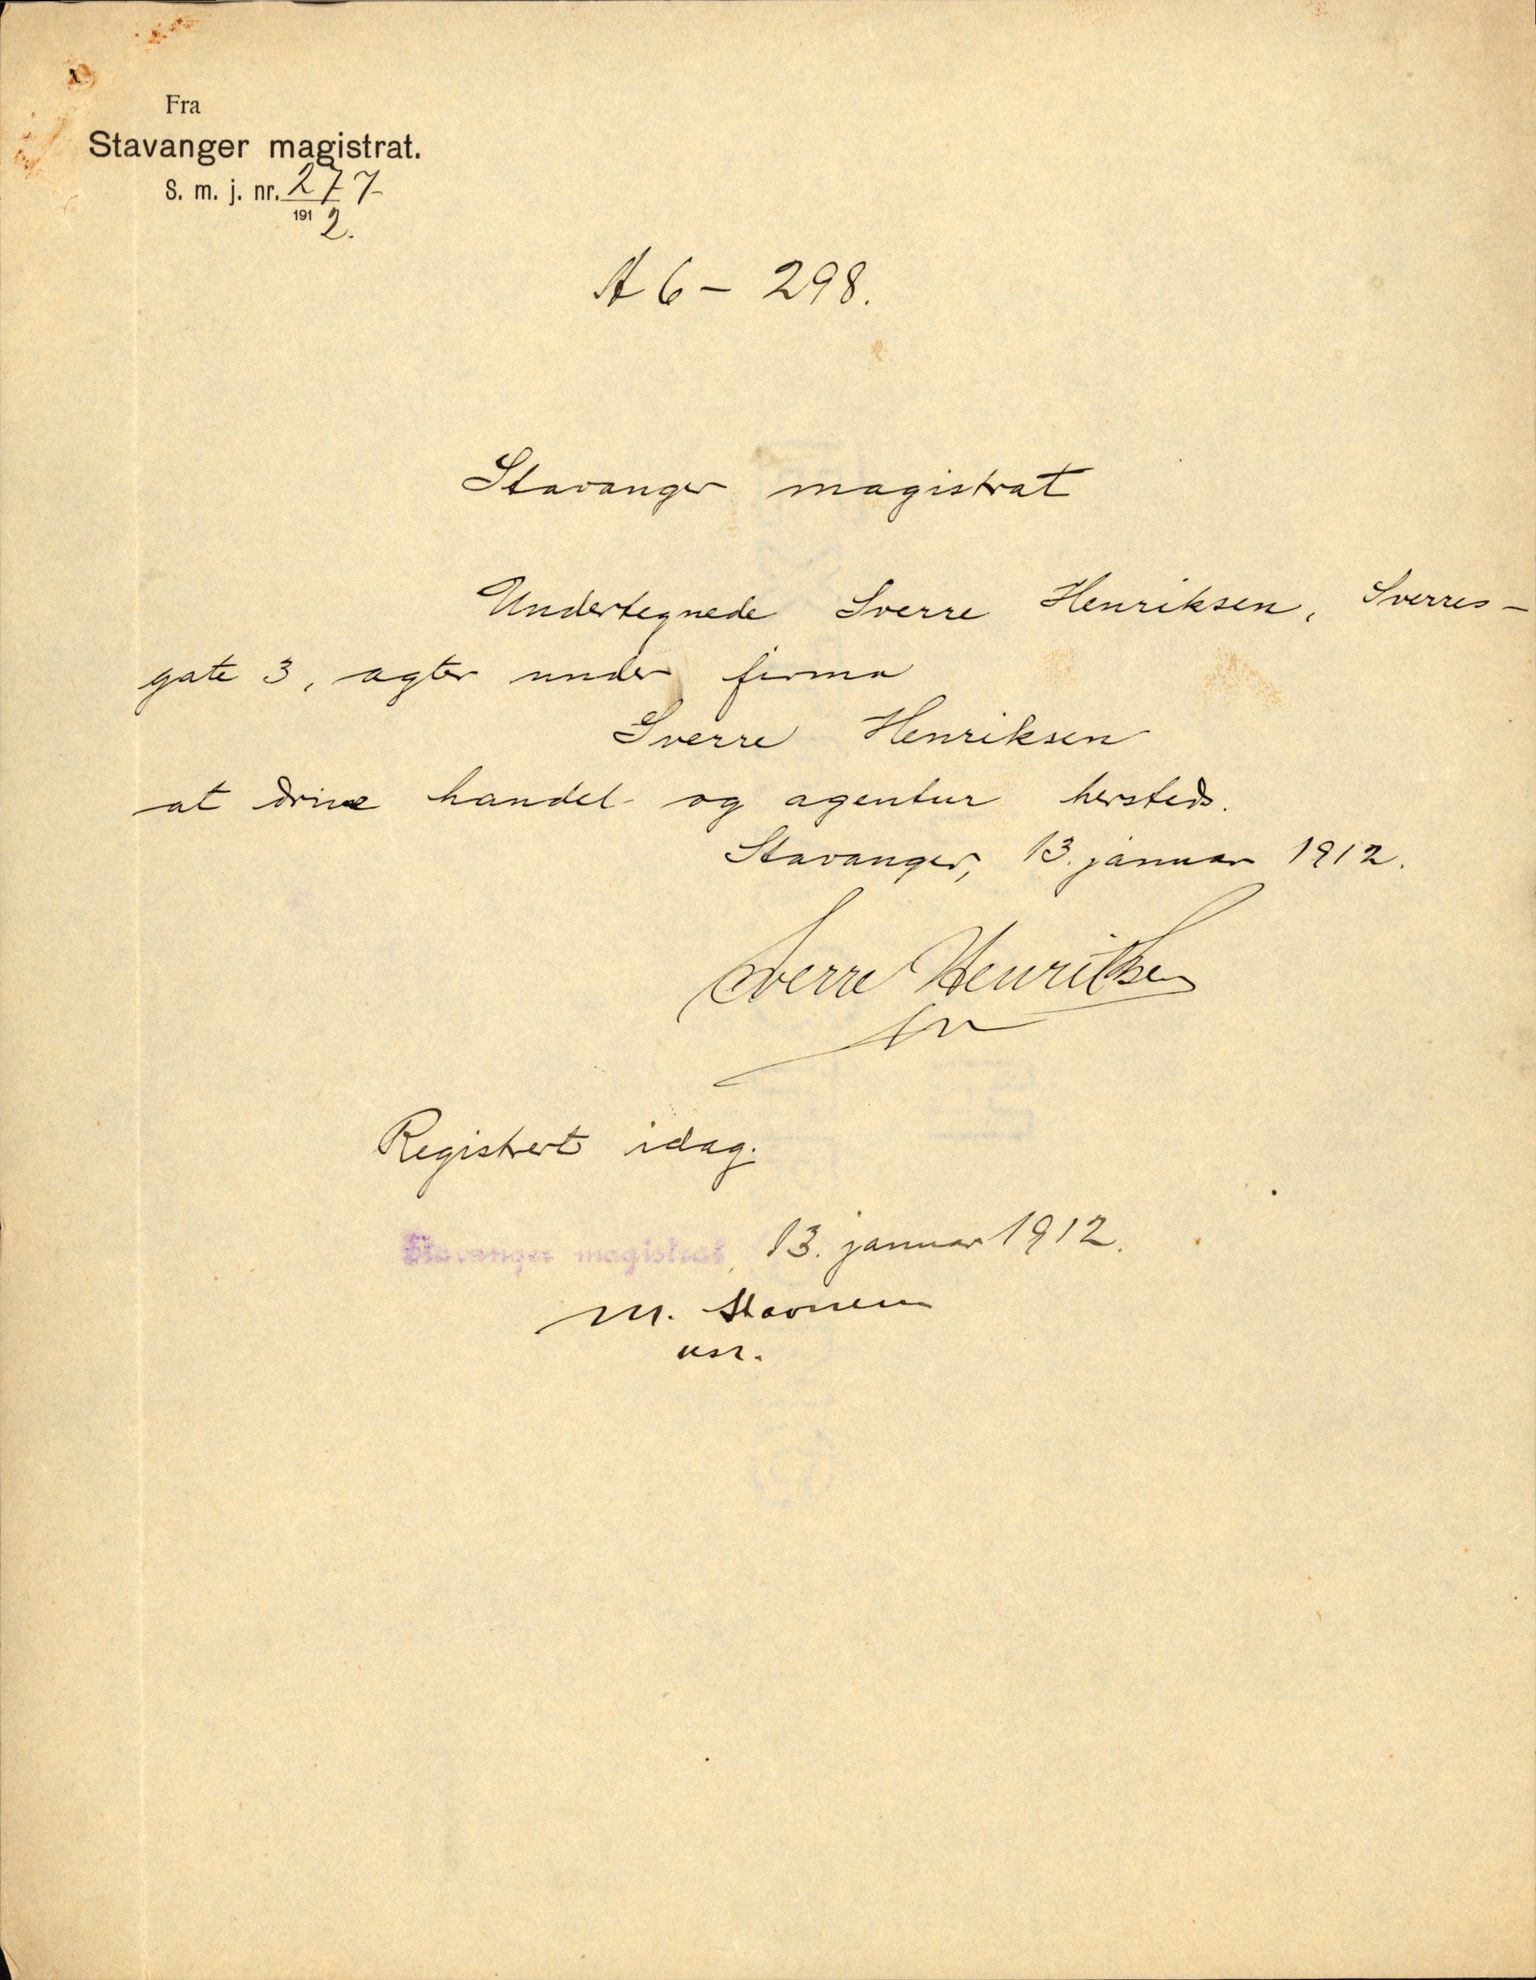 Fra
Stavanger magistrat.
S. m. j. nr. 277
1912.
A 6 - 298.
Stavanger magistrat
Undertegnede Sverre Henriksen, Sverres-
gate 3, agter under firma
Sverre Henriksen
at drive handel og agentur hersteds.
Stavanger, 13. januar 1912.
Sverre Henriksen
Registrert idag.
Stavanger magistrat, 13. januar 1912.
M. Stavnem